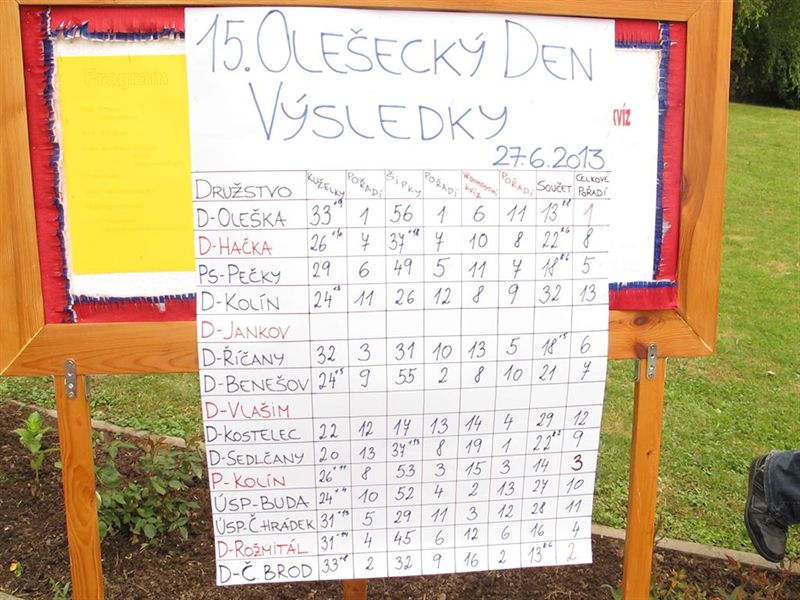 Program
15. OLEŠECKÝ DEN
VÝSLEDKY
KVÍZ
27.6.2013
DRUŽSTVO KUŽELKY POŘADÍ ŠIPKY POŘADÍ VĚDOMOSTNÍ KVÍZ POŘADÍ SOUČET CELKOVÉ POŘADÍ
D-OLEŠKA 33 1 56 1 6 11 13 1
D-HAČKA 26 7 37 7 10 8 22 8
PS-PEČKY 29 6 49 5 11 7 18 5
D-KOLÍN 24 11 26 12 8 9 32 13
D-JANKOV
D-ŘÍČANY 32 3 31 10 13 5 18 6
D-BENEŠOV 24 9 55 2 8 10 21 7
D-VLAŠIM
D-KOSTELEC 22 12 17 13 14 4 29 12
D-SEDLČANY 20 13 37 8 19 1 22 9
P-KOLÍN 26 8 53 3 15 3 14 3
ÚSP-BUDA 24 10 52 4 2 13 27 10
ÚSP.Č.HRÁDEK 31 5 29 11 3 12 28 11
D-ROŽMITÁL 31 4 45 6 12 6 16 4
D-Č.BROD 33 2 32 9 16 2 13 2